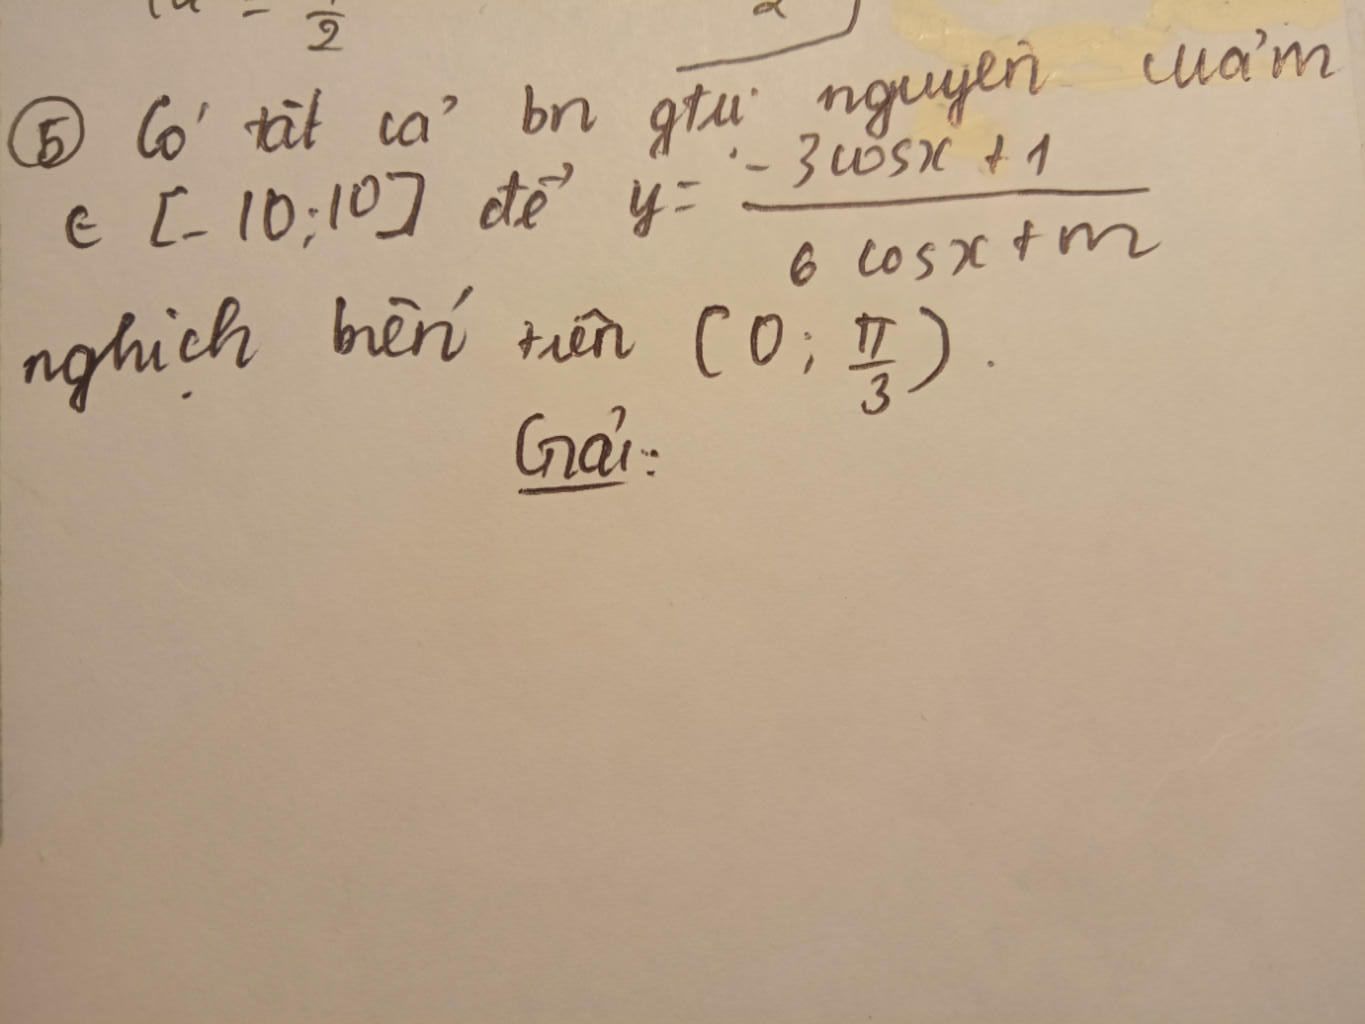 = 1/2
2
⑤ Có tất cả bn gtrị nguyên của m
∈ [-10;10] để y = (-3cosx + 1)/(6 cosx + m)
nghịch biến trên (0; π/3).
Giải: